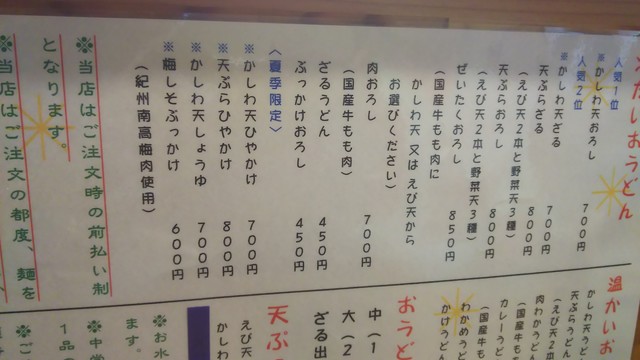 たいおうどん
人気1位
※かしわ天おろし 700円
人気2位
※かしわ天ざる 700円
天ぷらざる 800円
(えび天2本と野菜天3種)
天ぷらおろし 800円
(えび天2本と野菜天3種)
ぜいたくおろし 850円
(国産牛もも肉に
かしわ天 又は えび天から
お選びください)
肉おろし 700円
(国産牛もも肉)
ざるうどん 450円
ぶっかけおろし 450円
〈夏季限定〉
※かしわ天ひやかけ 700円
※天ぷらひやかけ 800円
※かしわ天しょうゆ 700円
※梅しそぶっかけ 600円
(紀州南高梅肉使用)
※当店はご注文時の前払い制
となります。
※当店はご注文の都度、麺を
温かいお
かしわ天うどん
天ぷらうど
(えび天2
肉わかうど
(国産牛も
カレーうど
(国産牛も
わかめうど
かけうどん
おうど
中(1
大(2
ざる出
天ぷ
えび天
かしわ
※お水
ます。
※中学
1品の
※ご